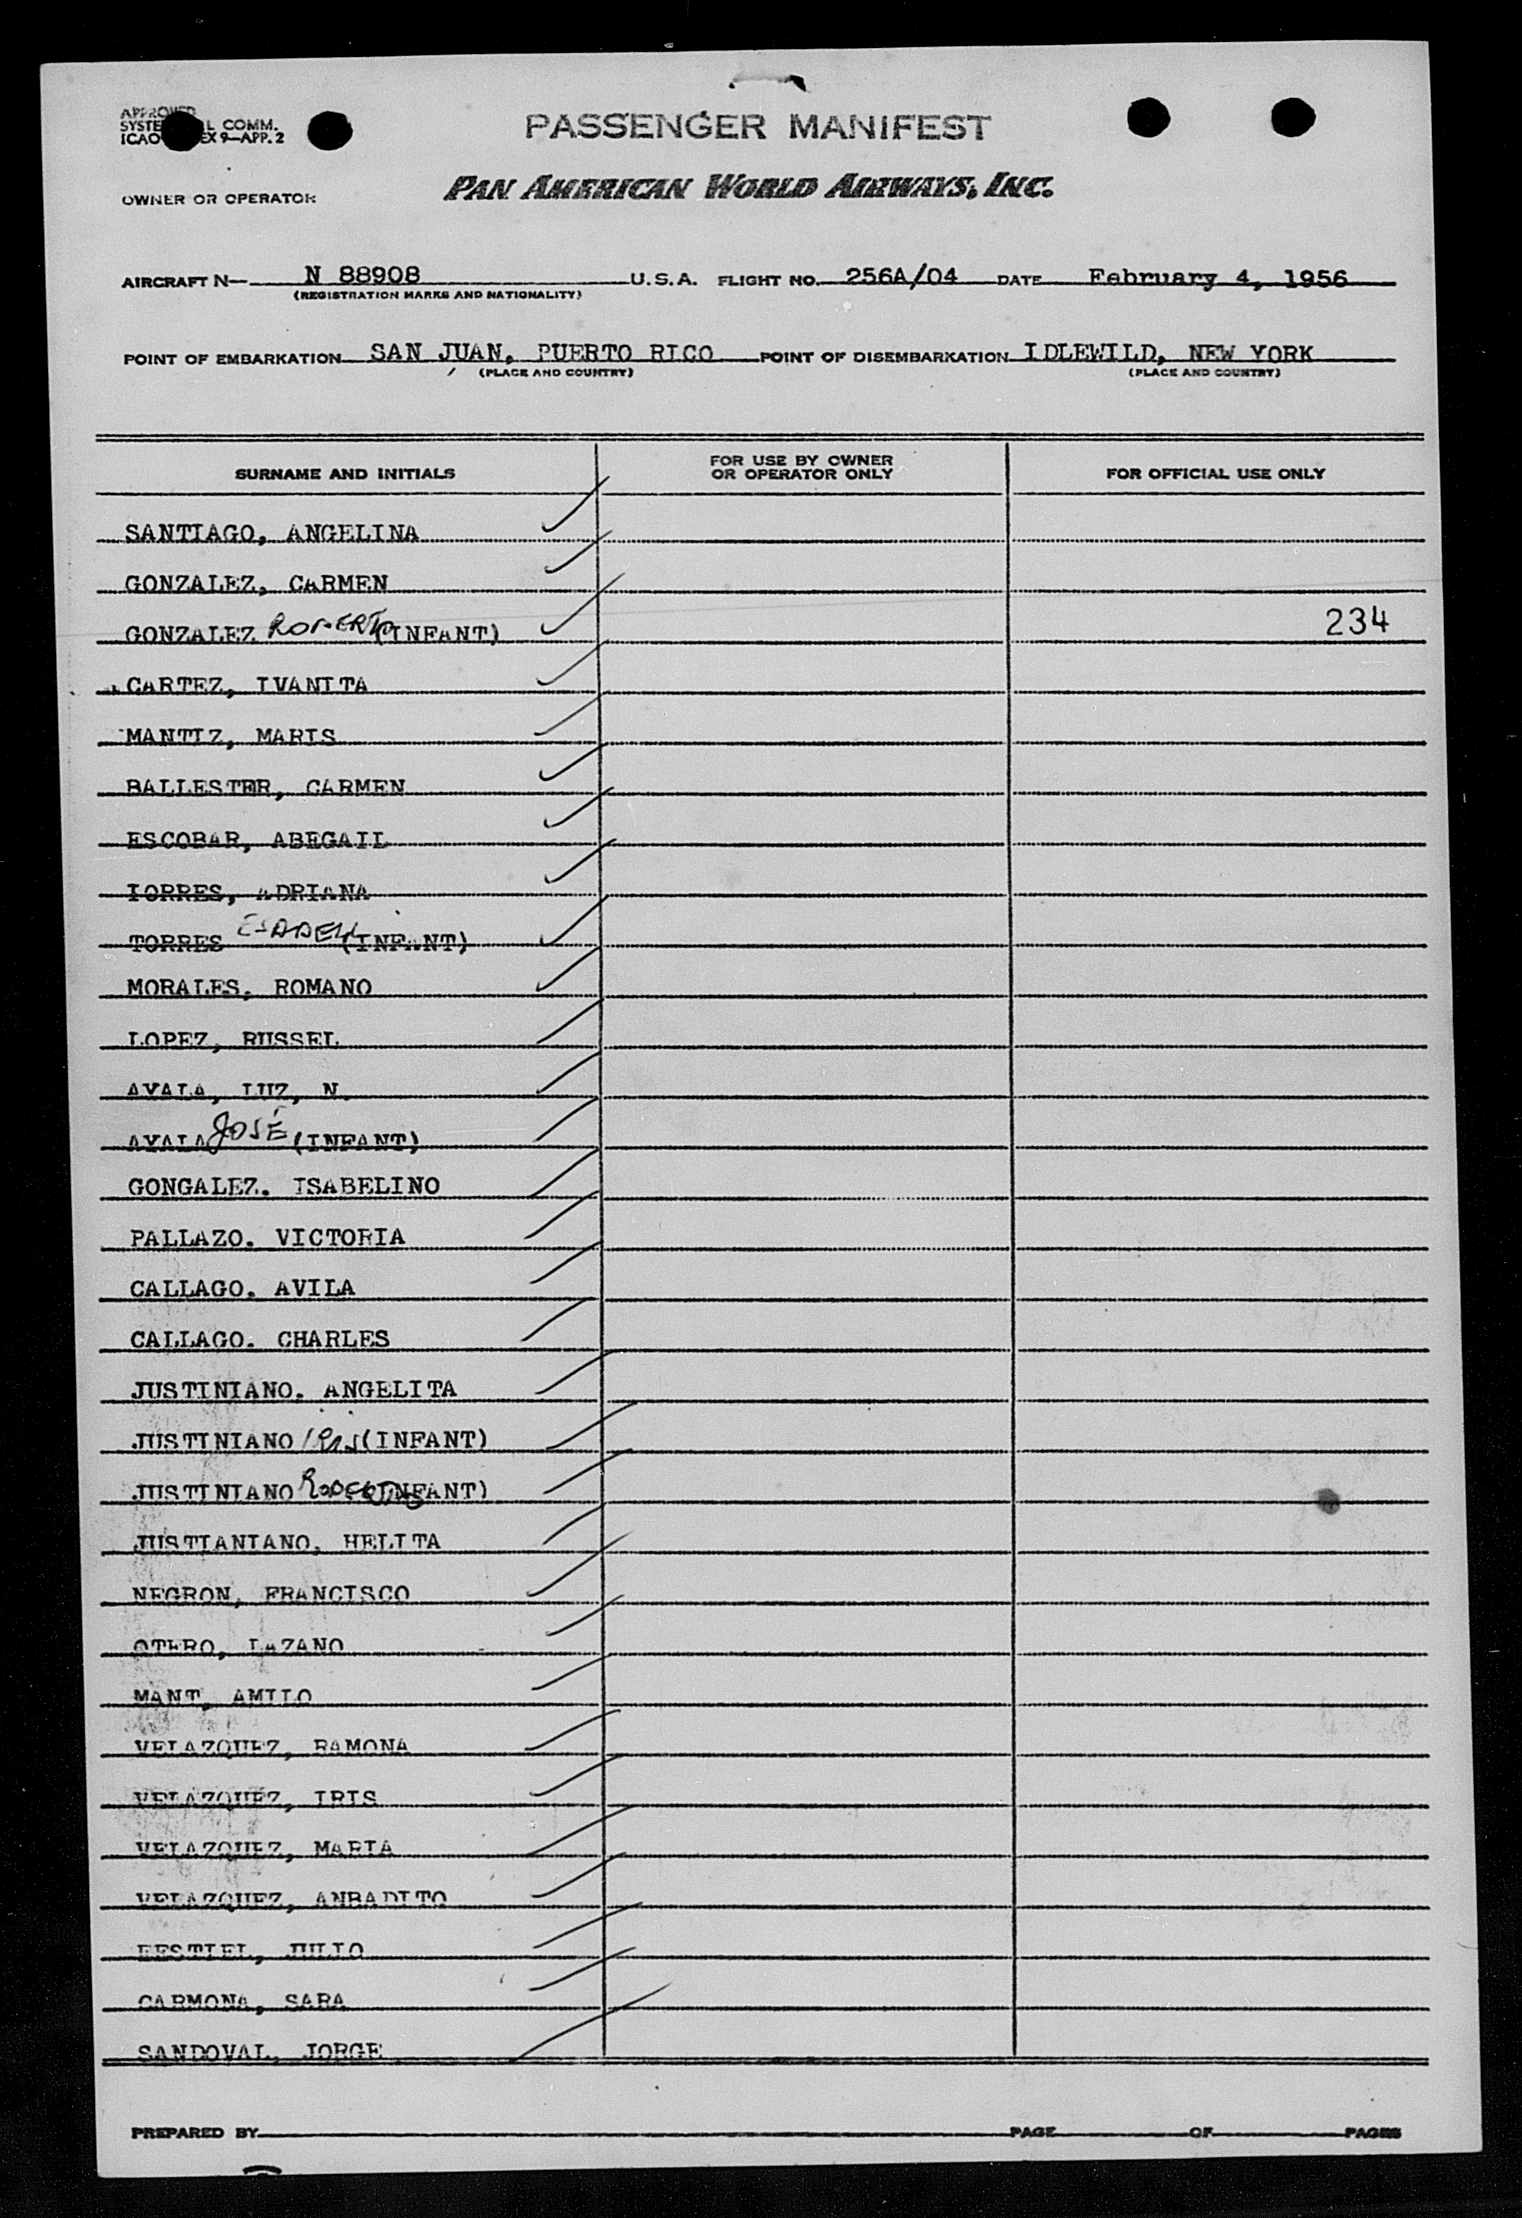 APPROVED
SYSTE L COMM.
ICAO EX 9—APP. 2
PASSENGER MANIFEST
OWNER OR OPERATOR
PAN AMERICAN WORLD AIRWAYS, INC.
AIRCRAFT N— N 88908 U.S.A. FLIGHT NO. 256A/04 DATE February 4, 1956
(REGISTRATION MARKS AND NATIONALITY)
POINT OF EMBARKATION SAN JUAN, PUERTO RICO POINT OF DISEMBARKATION IDLEWILD, NEW YORK
(PLACE AND COUNTRY) (PLACE AND COUNTRY)
SURNAME AND INITIALS FOR USE BY OWNER OR OPERATOR ONLY FOR OFFICIAL USE ONLY
SANTIAGO, ANGELINA
GONZALEZ, CARMEN
GONZALEZ ROBERTO (INFANT) 234
CARTEZ, IVANITA
MANTIZ, MARIS
BALLESTER, CARMEN
ESCOBAR, ABEGAIL
TORRES, ADRIANA
TORRES (INFANT)
MORALES, ROMANO
LOPEZ, RUSSEL
AYALA, LUZ, N.
AYALA JOSÉ (INFANT)
GONGALEZ. ISABELINO
PALLAZO. VICTORIA
CALLAGO. AVILA
CALLAGO. CHARLES
JUSTINIANO. ANGELITA
JUSTINIANO IRIS (INFANT)
JUSTINIANO (INFANT)
JUSTIANIANO, HELITA
NEGRON, FRANCISCO
OTERO, LAZANO
MANT, AMILO
VELAZQUEZ, RAMONA
VELAZQUEZ, IRIS
VELAZQUEZ, MARIA
VELAZQUEZ, ANBADITO
JULIO
CARMONA, SARA
SANDOVAL, JORGE
PREPARED BY PAGE OF PAGES